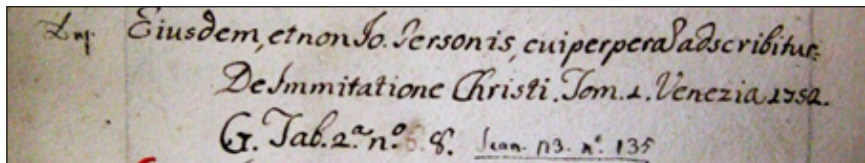 Dup. Eiusdem, et non Jo. Personis, cui perpera͠ adscribitur.
De Immitatione Christi. Tom. 1. Venezia 1752.
G. Tab. 2.ª n.º 8. Scan. 13. n.º 135